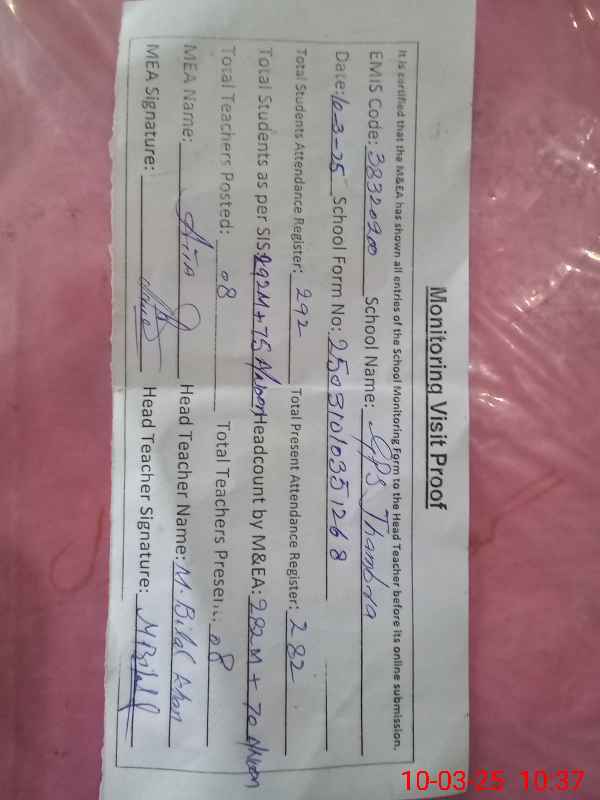 Monitoring Visit Proof
It is certified that the M&EA has shown all entries of the School Monitoring Form to the Head Teacher before its online submission.
EMIS Code: 38320900 School Name: GPS Thambra
Date: 10-3-25 School Form No: 25031010351268
Total Students Attendance Register: 292 Total Present Attendance Register: 282
Total Students as per SIS: 292M+75 A/Noon Headcount by M&EA: 282M + 70 A/Noon
Total Teachers Posted: 08 Total Teachers Present: 08
MEA Name: Head Teacher Name: M. Bilal Khan
MEA Signature: Head Teacher Signature: M Bilal
10-03-25 10:37